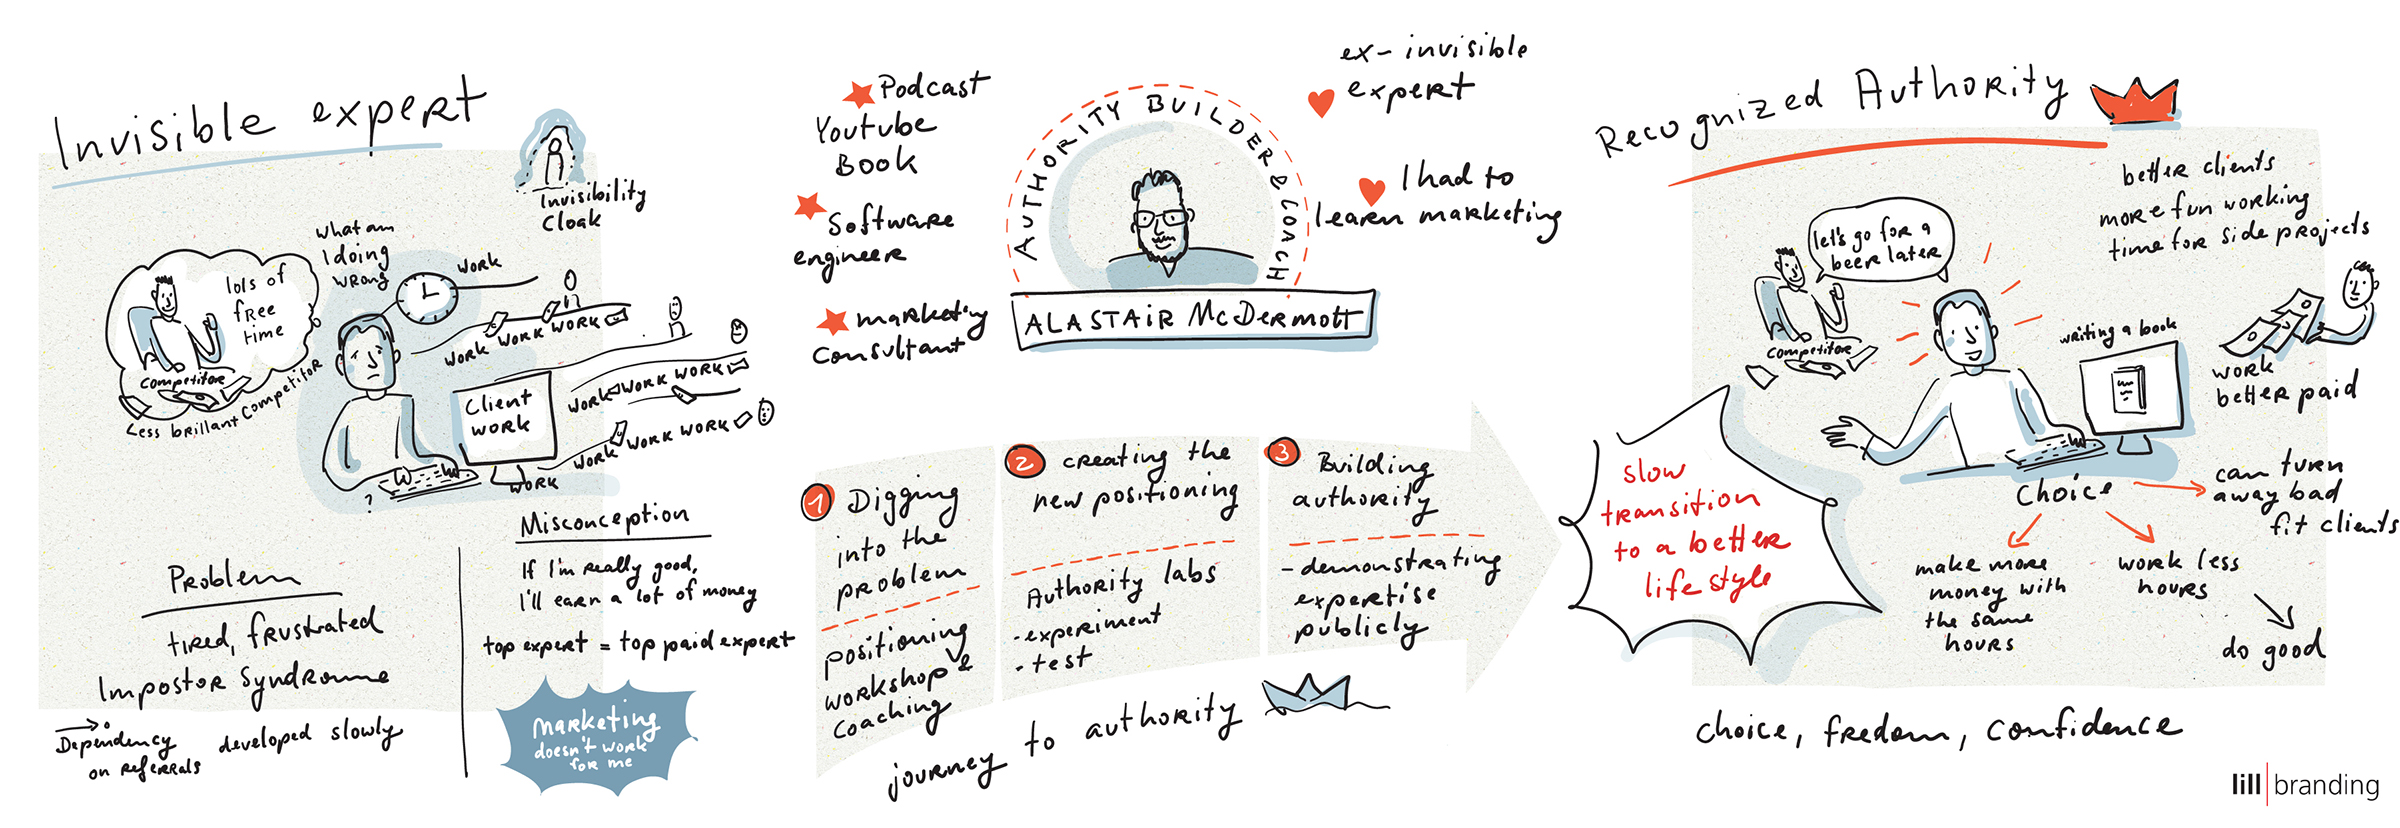 Invisible expert
Invisibility
Cloak
what am
I doing
wrong
lots of
free
time
competitor
Less brillant competitor
work
work work work
work work work
work work work
work
Client
work
W
?
Problem
tired, frustrated
Impostor Syndrome
Dependency
on referrals
developed slowly
Misconception
If I'm really good,
I'll earn a lot of money
top expert = top paid expert
marketing
doesn't work
for me
Podcast
Youtube
Book
Software
engineer
marketing
consultant
AUTHORITY BUILDER & COACH
ALASTAIR McDermott
ex-invisible
expert
I had to
learn marketing
1 Digging
into the
problem
positioning
workshop &
coaching
2 creating the
new positioning
Authority labs
- experiment
- test
3 Building
authority
- demonstrating
expertise
publicly
journey to authority
slow
transition
to a better
life style
Recognized Authority
better clients
more fun working
time for side projects
let's go for a
beer later
competitor
writing a book
work
better paid
choice
can turn
away bad
fit clients
make more
money with
the same
hours
work less
hours
do good
choice, fredom, confidence
lill|branding